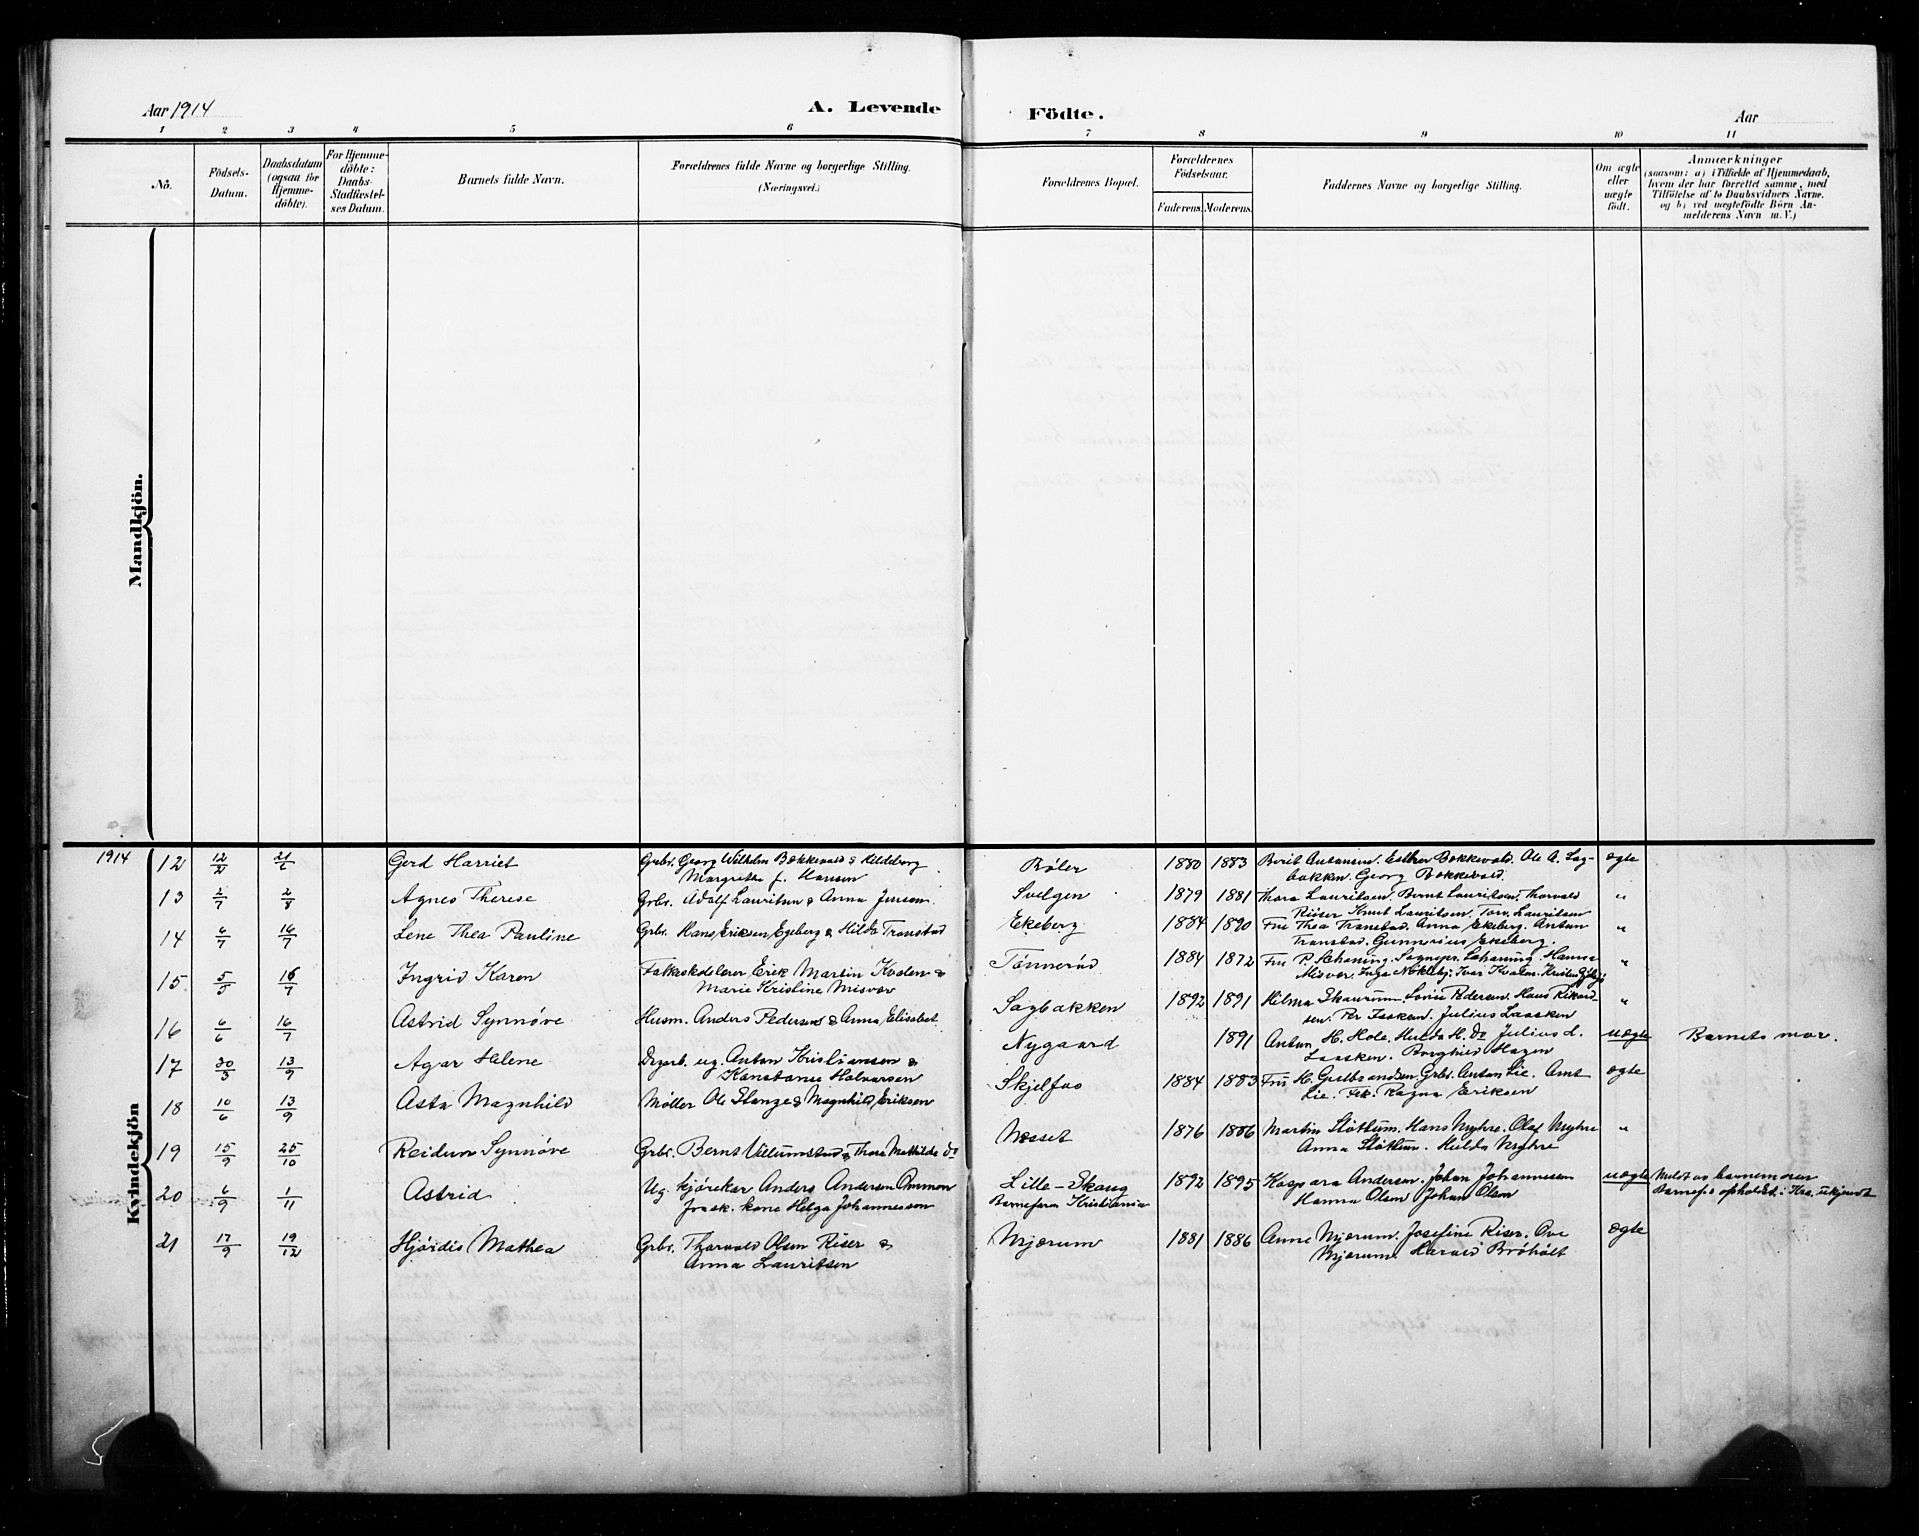 Aar 1914
A. Levende Födte.
Aar
1 2 3 4 5 6 7 8 9 10 11
No.
Födsels-Datum.
Daabsdatum (ogsaa för Hjemme-döbte).
For Hjemme-döbte: Daabs-Stadfæstel-ses Datum.
Barnets fulde Navn.
Forældrenes fulde Navne og borgerlige Stilling.
(Næringsvei.)
Forældrenes Bopæl.
Forældrenes Födselsaar.
Faderens. Moderens.
Faddernes Navne og borgerlige Stilling.
Om ægte eller uægte födt.
Anmærkninger
(saasom: a) i Tilfælde af Hjemmedaab,
hvem der har forrettet samme, med
Tilföielse af to Daabsvidners Navne.
og b) ved uægtefödte Börn An-
melderens Navn m. V.)
Mandkjön.
Kvindekjön
1914 12 21 Gerd Harriet Grbr. Georg Wilhelm Bokkevold & Hildeborg Røler 1880 1883 Berit Antonsen. Esther Bokkevold. Ole A. Sag- ægte
Margrethe f. Hansen bakken. Georg Bokkevold.
13 2/7 2/8 Agnes Therese Grbr. Adolf Lauritsen & Anna Jensen Svelgen 1879 1881 Thora Lauritsen. Bernt Lauritsen. Thorvald "
Riiser Knut Lauritsen. Torv. Lauritsen
14 6/7 16/7 Lene Thea Pauline Grbr. Hans Eriksen Egeberg & Hilda Transtad Ekeberg 1884 1890 Fru Thea Transtad. Anna Ekeberg. Anton "
Transtad. Gunnerius Ekeberg.
15 5/5 16/7 Ingrid Karen Folkskolelærer Erik Martin Kvalen & Tønnerud 1884 1872 Fru P. Schaning. Sognepr. Schaning. Hanna "
Marie Kristine Misvær Misvær. Inga Nokleby. Ivar Kvalen.
16 6/6 16/7 Astrid Synnøve Husm. Anders Pedersen & Anna Elisabet Sagbakken 1892 1891 Hilma Skaurum. Lovise Pedersen. Hans Rikard- "
sen. Per Laasken. Julius Laasken
17 30/3 13/9 Agar Helene Dagarb. ug. Anton Kristiansen & Nygaard 1891 Anton H. Hole. Hulda H. Do Julius L. uægte Barnets mor.
Konstanse Halvorsen Laasken. Borghild Hagen
18 10/6 13/9 Asta Magnhild Møller Ole Stange & Magnhild Eriksen Skjelfos 1884 1883 Fru H. Gulbrandsen. Grbr. Anton Lie. Amt ægte
Lie. Frk. Ragna Eriksen
19 15/9 25/10 Reidun Synnøve Grbr. Bernt Villumstad & Thora Mathilde Do Næsset 1876 1886 Martin Støttum. Hans Myhre. Olaf Myhre "
Anna Støttum. Hulda Myhre
20 6/9 1/11 Astrid Ug. kjørekar Anders Andersen Ommon Lille-Skaug 1892 1895 Kaspara Andersen. Johan Johannessen uægte Meldt av barnemoren
frask. kone Helga Johannessen Barnefaren Kristiania Hanna Olsen Johan Olsen Barnef.s opholdst. i Kra. ukjendt
21 17/9 19/12 Hjördis Mathea Grbr. Thorvald Olsen Riser & Mjærum 1881 1886 Anne Mjærum. Josefine Riser. Ove ægte
Anna Lauritsen Mjærum. Harald Brøholt